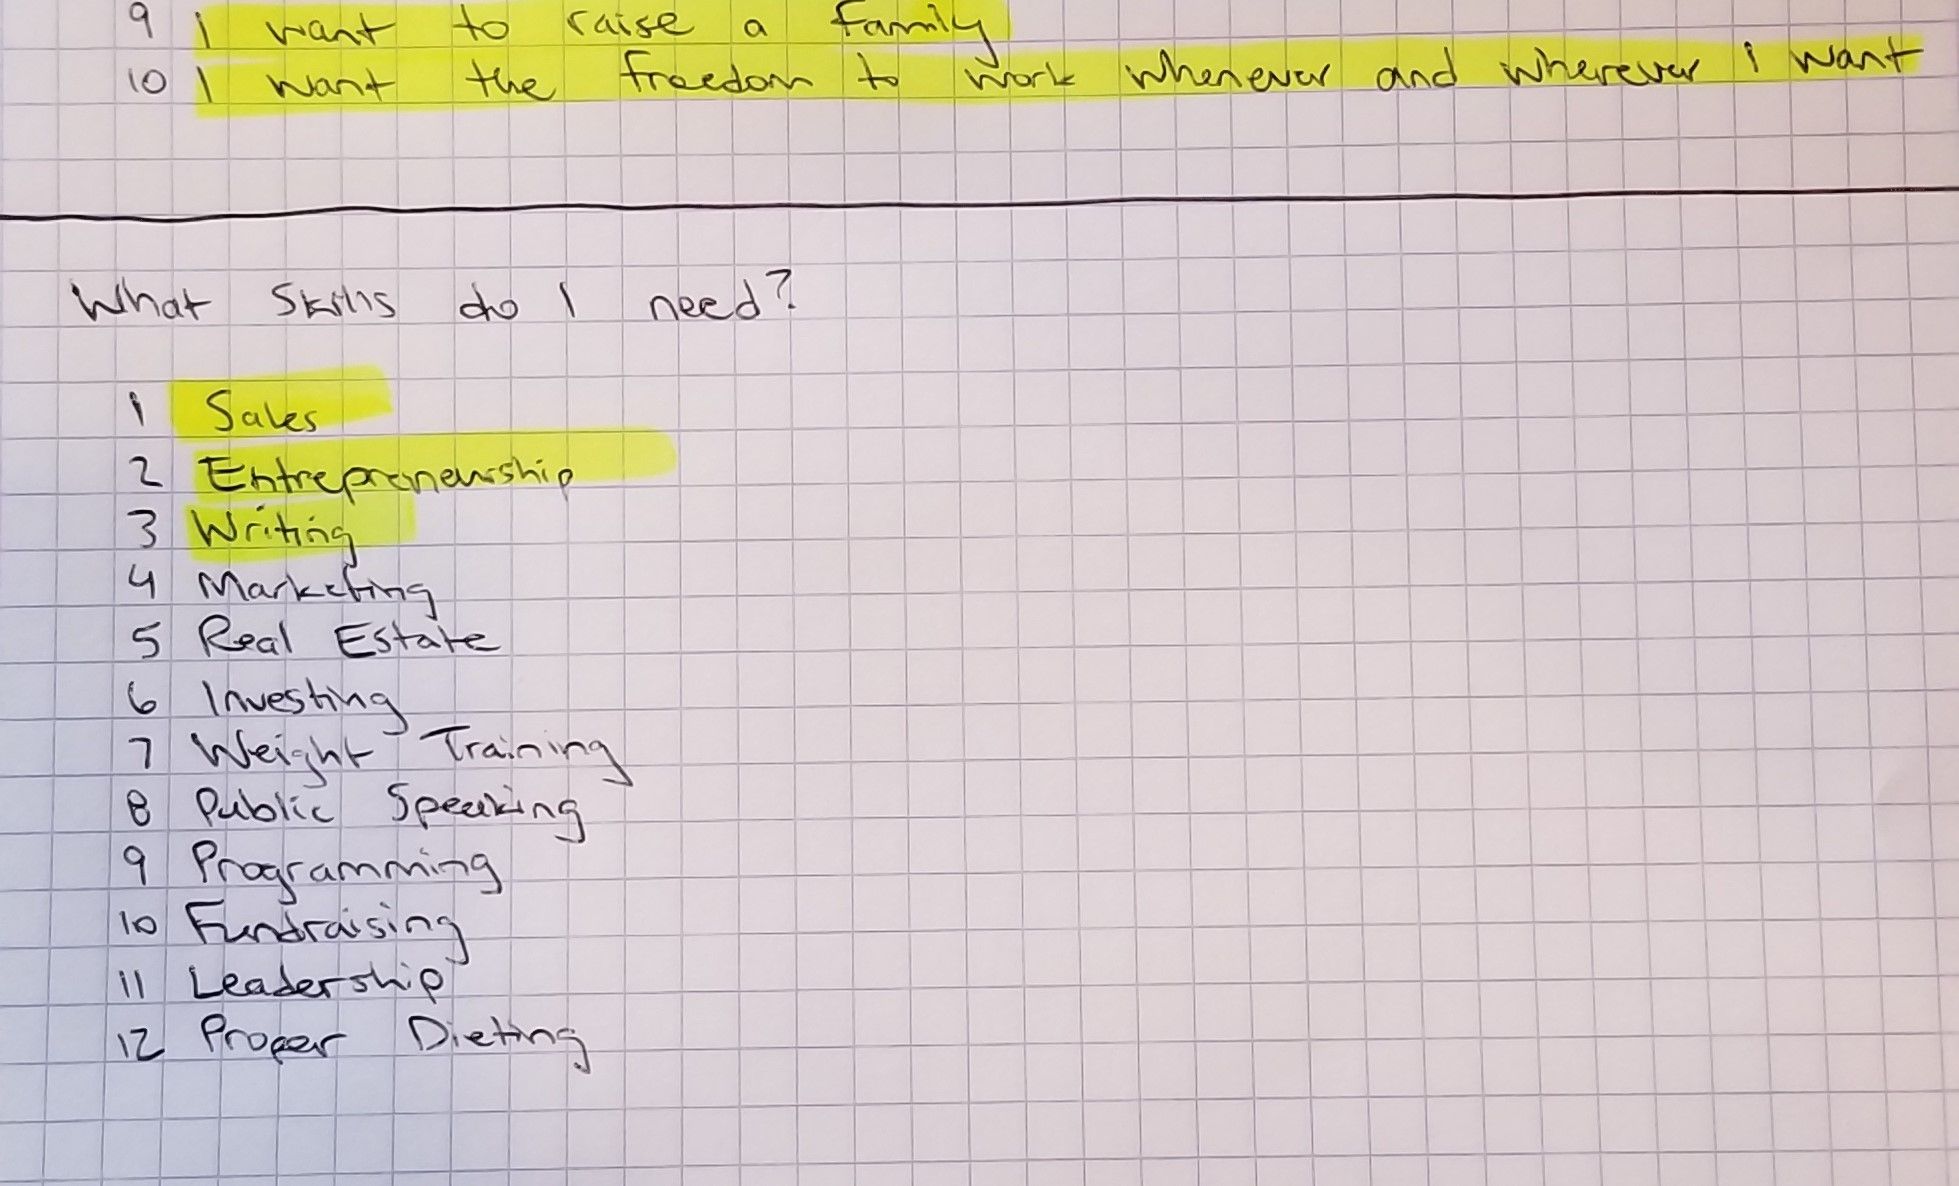 9 I want to raise a family
10 I want the freedom to work whenever and wherever I want
What Skills do I need?
1 Sales
2 Entrepreneurship
3 Writing
4 Marketing
5 Real Estate
6 Investing
7 Weight Training
8 Public Speaking
9 Programming
10 Fundraising
11 Leadership
12 Proper Dieting